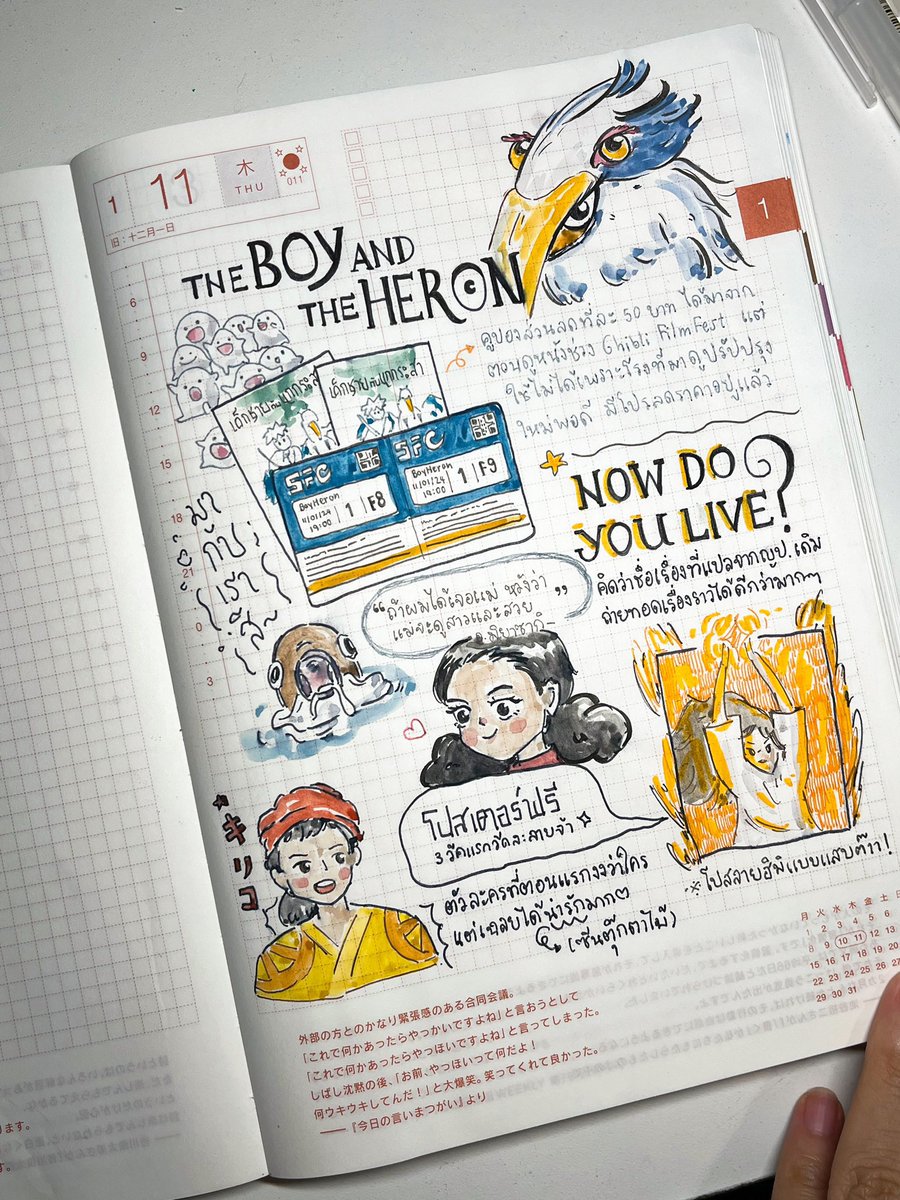 1
11
木
THU
011
旧：十二月一日
1
THE BOY AND
THE HERON
คูปองส่วนลดที่ละ 50 บาท ได้มาจาก
ตอนดูหนังช่วง Ghibli Film Fest แต่
ใช้ไม่ได้เพราะโรงที่มาดูปรับปรุง
ใหม่พอดี มีโปรลดราคาอยู่แล้ว
6
9
12
15
18
21
0
3
เด็กชายกับนกกระสา
เด็กชายกับนกกระสา
SFC
BoyHeron
11/01/24
19:00
1
F8
SFC
BoyHeron
11/01/24
19:00
1
F9
NOW DO
YOU LIVE?
คิดว่าชื่อเรื่องที่แปลจากญป. เดิม
ถ่ายทอดเรื่องราวได้ดีกว่ามากๆ
มา
กับ
เรา
สิ~
"ถ้าผมได้เจอแม่ หวังว่า
แม่จะดูสาวและสวย"
โปสเตอร์ฟรี
3 วีคแรกวีคละลายจ้า
キリコ
ตัวละครที่ตอนแรกงงว่าใคร
แต่เฉลยได้น่ารักมากๆ
(ซีนตุ๊กตาไม้)
※โปสลายฮิมิแบบแสบต๊าา!
月 火 水 木 金 土 日
1 2 3 4 5 6
8 9 10 11 12 13
15 16 17 18 19 20
22 23 24 25 26 27
29 30 31
外部の方とのかなり緊張感のある合同会議。
「これで何かあったらやっかいですよね」と言おうとして
「これで何かあったらやっほいですよね」と言ってしまった。
しばし沈黙の後、「お前、やっほいって何だよ！
何ウキウキしてんだ！」と大爆笑。笑ってくれて良かった。
——『今日の言いまつがい』より
ります。
す。